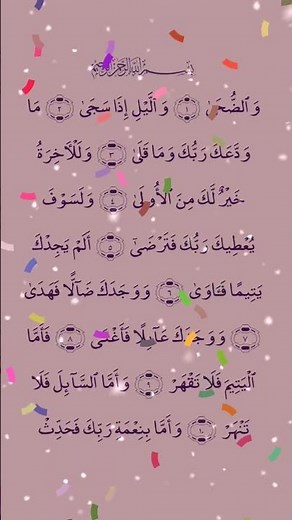 بسم الله الرحمن الرحيم
وَٱلضُّحَىٰ ١ وَٱلَّيْلِ إِذَا سَجَىٰ ٢ مَا
وَدَّعَكَ رَبُّكَ وَمَا قَلَىٰ ٣ وَلَلْآخِرَةُ
خَيْرٌ لَّكَ مِنَ ٱلْأُولَىٰ ٤ وَلَسَوْفَ
يُعْطِيكَ رَبُّكَ فَتَرْضَىٰٓ ٥ أَلَمْ يَجِدْكَ
يَتِيمًا فَـَٔاوَىٰ ٦ وَوَجَدَكَ ضَآلًّا فَهَدَىٰ
٧ وَوَجَدَكَ عَآئِلًا فَأَغْنَىٰ ٨ فَأَمَّا
ٱلْيَتِيمَ فَلَا تَقْهَرْ ٩ وَأَمَّا ٱلسَّآئِلَ فَلَا
تَنْهَرْ ١٠ وَأَمَّا بِنِعْمَةِ رَبِّكَ فَحَدِّثْ